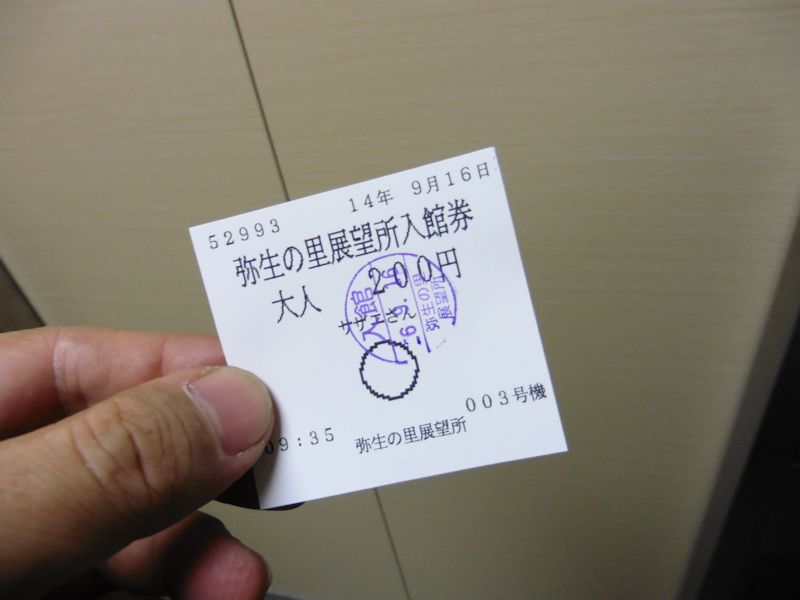 52993
14年 9月16日
弥生の里展望所入館券
大人 200円
サザエさん
入館
26.9.16
弥生の里
展望所
003号機
09:35 弥生の里展望所